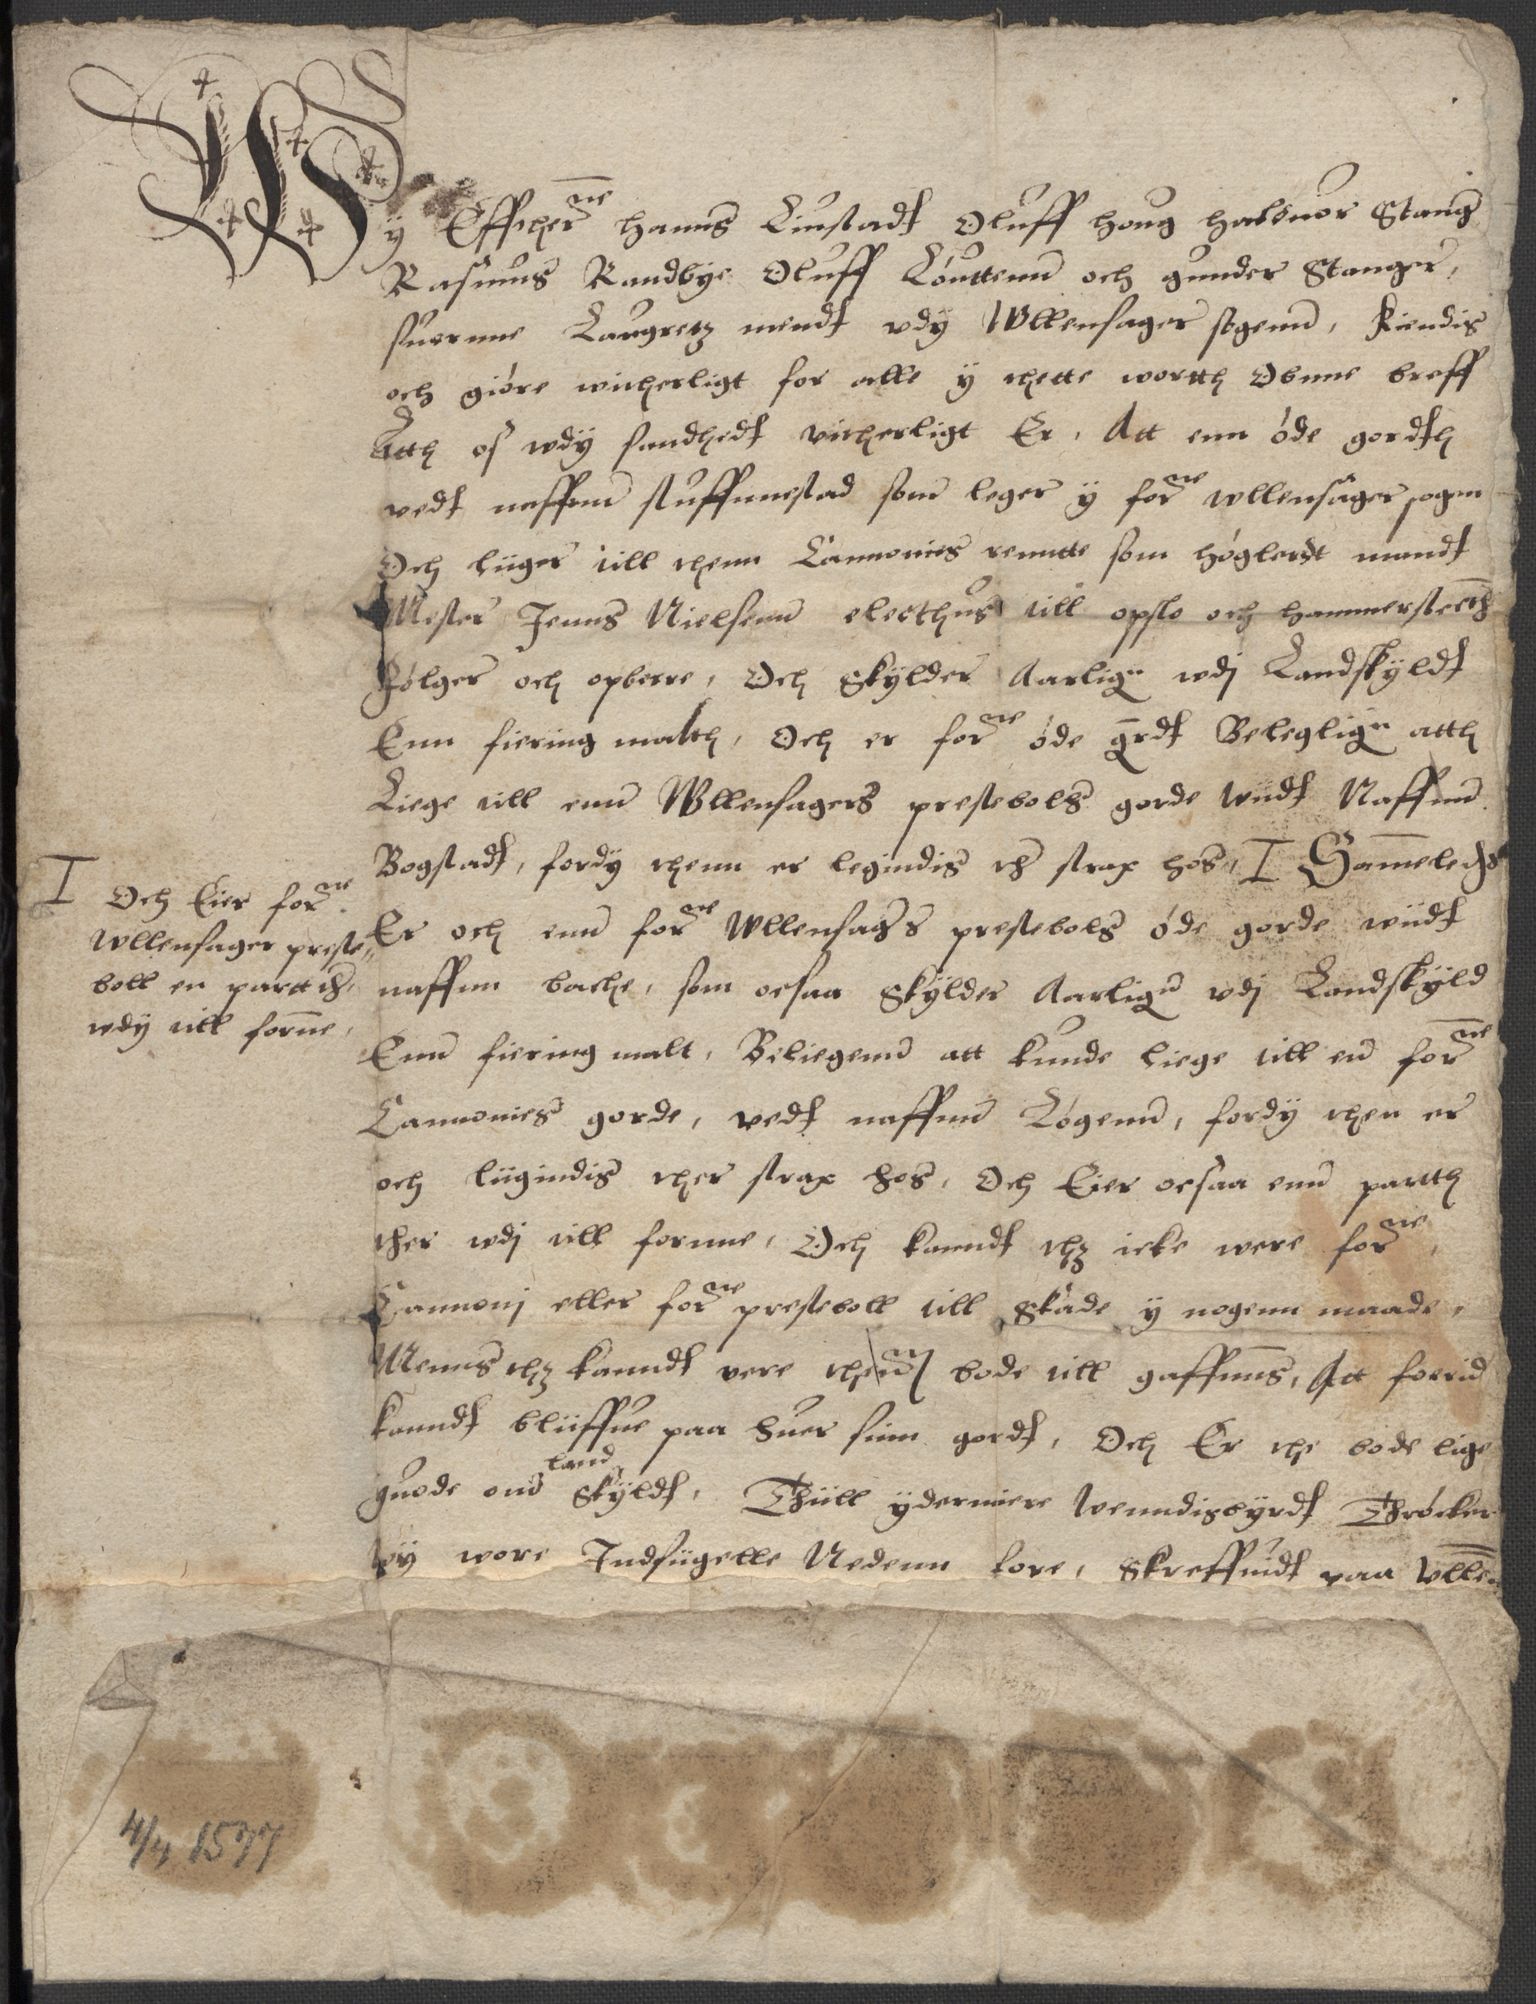 Wy Effthernne Hanns Liustadt Oluff Houg Haluuor Stang
Rasmus Randbye Oluff Louttenn och Gunder Stanger,
suornne Laugretz mendt vdy Wllensager sogenn, kiendis
och giøre witherligt for alle y thette wortth Obnne breff
Atth os wdy sandhedt vitherligt Er, Att enn øde gordth
vedt naffnn stuffnnestad som leger y forne Wllensager sogen
Och liiger till thenn Cannonies rennte som høglerdt mandt
Mester Jenns Nielsenn electhus till opslo och Hammersteth
følger och opberre, Och Skylder Aarlign wdj Landskyldt
Enn fiering malth, Och er forne øde gordt Beleglign atth
Liege till enn Wllensagers prestebols gorde widt Naffnn
Bogstadt, fordy thenn er leginndis th strax hos, I Sammeledes
Er och enn forne Wllensagers prestebols øde gorde wiidt
naffnn backe, som ocsaa Skylder Aarlign vdj Landskyld
Enn fiering malt, Beliegenn att kunde liege till en forne
Cannonies gorde, vedt naffnn Løgenn, fordy then er
och liigindis ther strax hos, Och Eier ocsaa enn partth
ther wdj till fornne, Och kanndt thz icke were forne
Cannonj eller forne presteboll till Skade y nogenn maade,
Menns thz kanndt vere thenn bode till gaffnns, Att forrid
kanndt bliiffue paa huer siin gordt, Och Er the bode lige
guode om land Skyldt, Thiill yderniere Wenndisbyrdt Thrøcker
wy wore Indsiigelle Nedenn fore, Skreffuidt paa Vllen
I Och Eier forne
Wllensager preste
boll en partt th
wdy till fornne,
4/4 1577